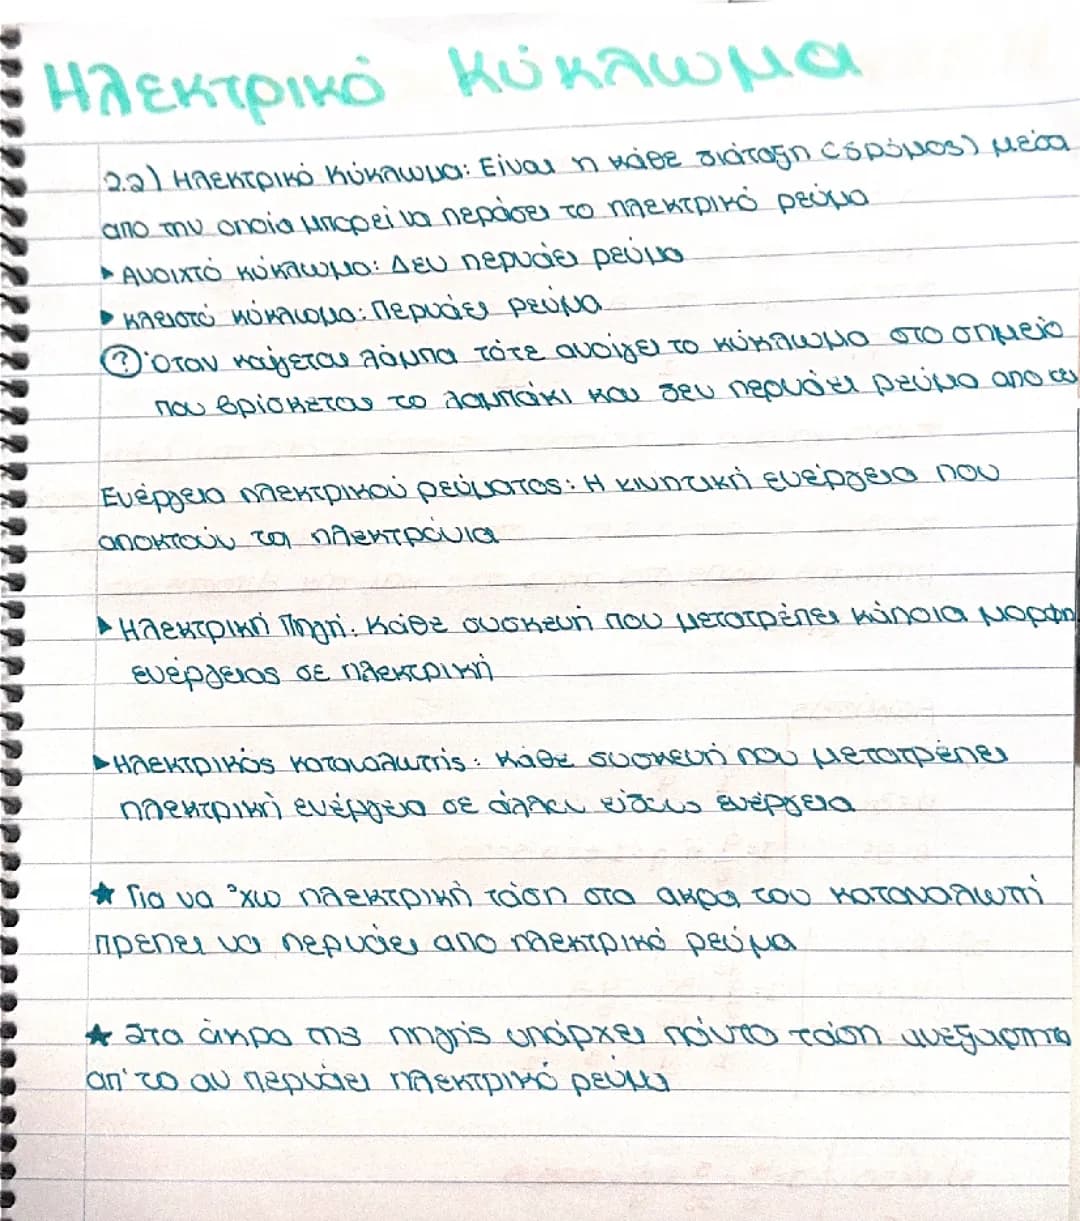 Ηλεκτρικό κύκλωμα
2.2) Ηλεκτρικό κύκλωμα: Είναι η κάθε διάταξη (δρόμος) μέσα
απο την οποία μπορεί να περάσει το ηλεκτρικό ρεύμα
▸ Ανοιχτό κύκλωμα: Δεν περνάει ρεύμα
▸ κλειστό κύκλωμα: Περνάει ρεύμα
? Όταν καίγεται λάμπα τότε ανοίγει το κύκλωμα στο σημείο
που βρίσκεται το λαμπάκι και δεν περνάει ρεύμα απο εκεί
Ενέργεια ηλεκτρικού ρεύματος: Η κινητική ενέργεια που
αποκτούν τα ηλεκτρόνια
▸ Ηλεκτρική Πηγή: Κάθε συσκευή που μετατρέπει κάποια μορφη
ενέργειας σε ηλεκτρική
▸ Ηλεκτρικός καταναλωτής: Κάθε συσκευή που μετατρέπει
ηλεκτρική ενέργεια σε άλλου είδους ενέργεια
★ Για να 'χω ηλεκτρική τάση στα ακρα του καταναλωτή
πρέπει να περνάει απο ηλεκτρικό ρεύμα
★ Στα άκρα της πηγής υπάρχει πάντα τάση ανεξαρτητα
απ' το αν περνάει ηλεκτρικό ρεύμα